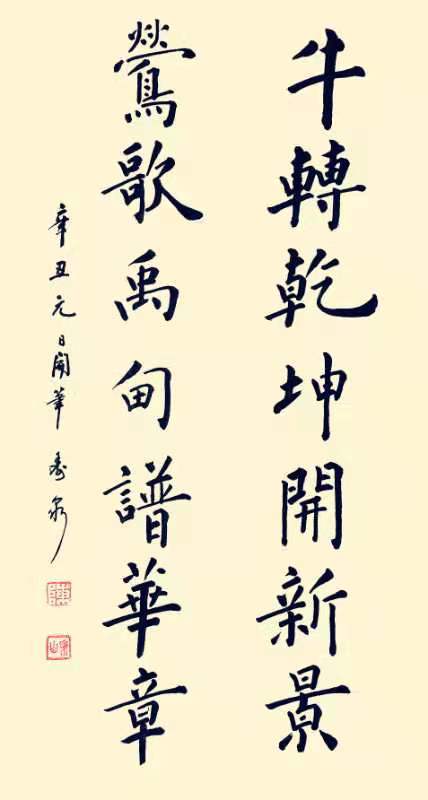 牛轉乾坤開新景
鶯歌禹甸譜華章
辛丑元日開筆